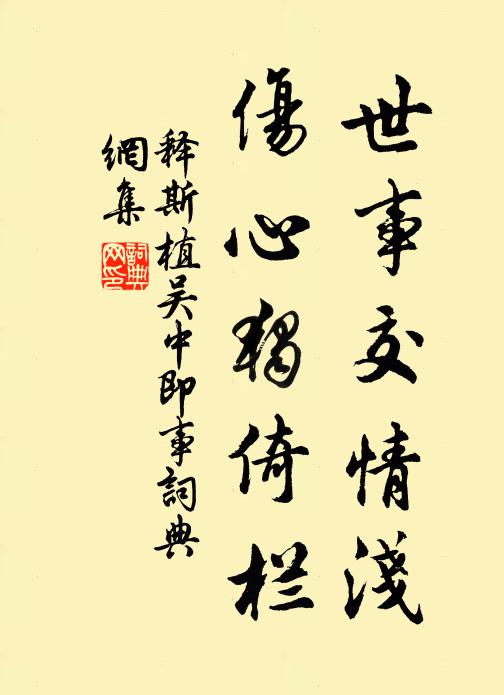 世事交情淺
傷心獨倚栏
释斯植吴中即事詞典
網集
詞典網印